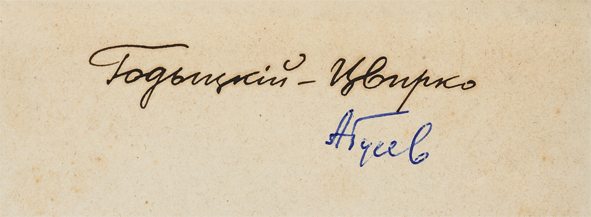 Годыцкій - Цвирко
АГусев